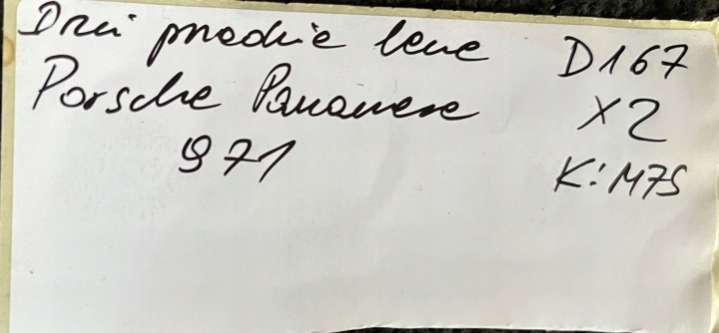 Drzwi przednie lewe D167
Porsche Panamera X2
971 K: M75